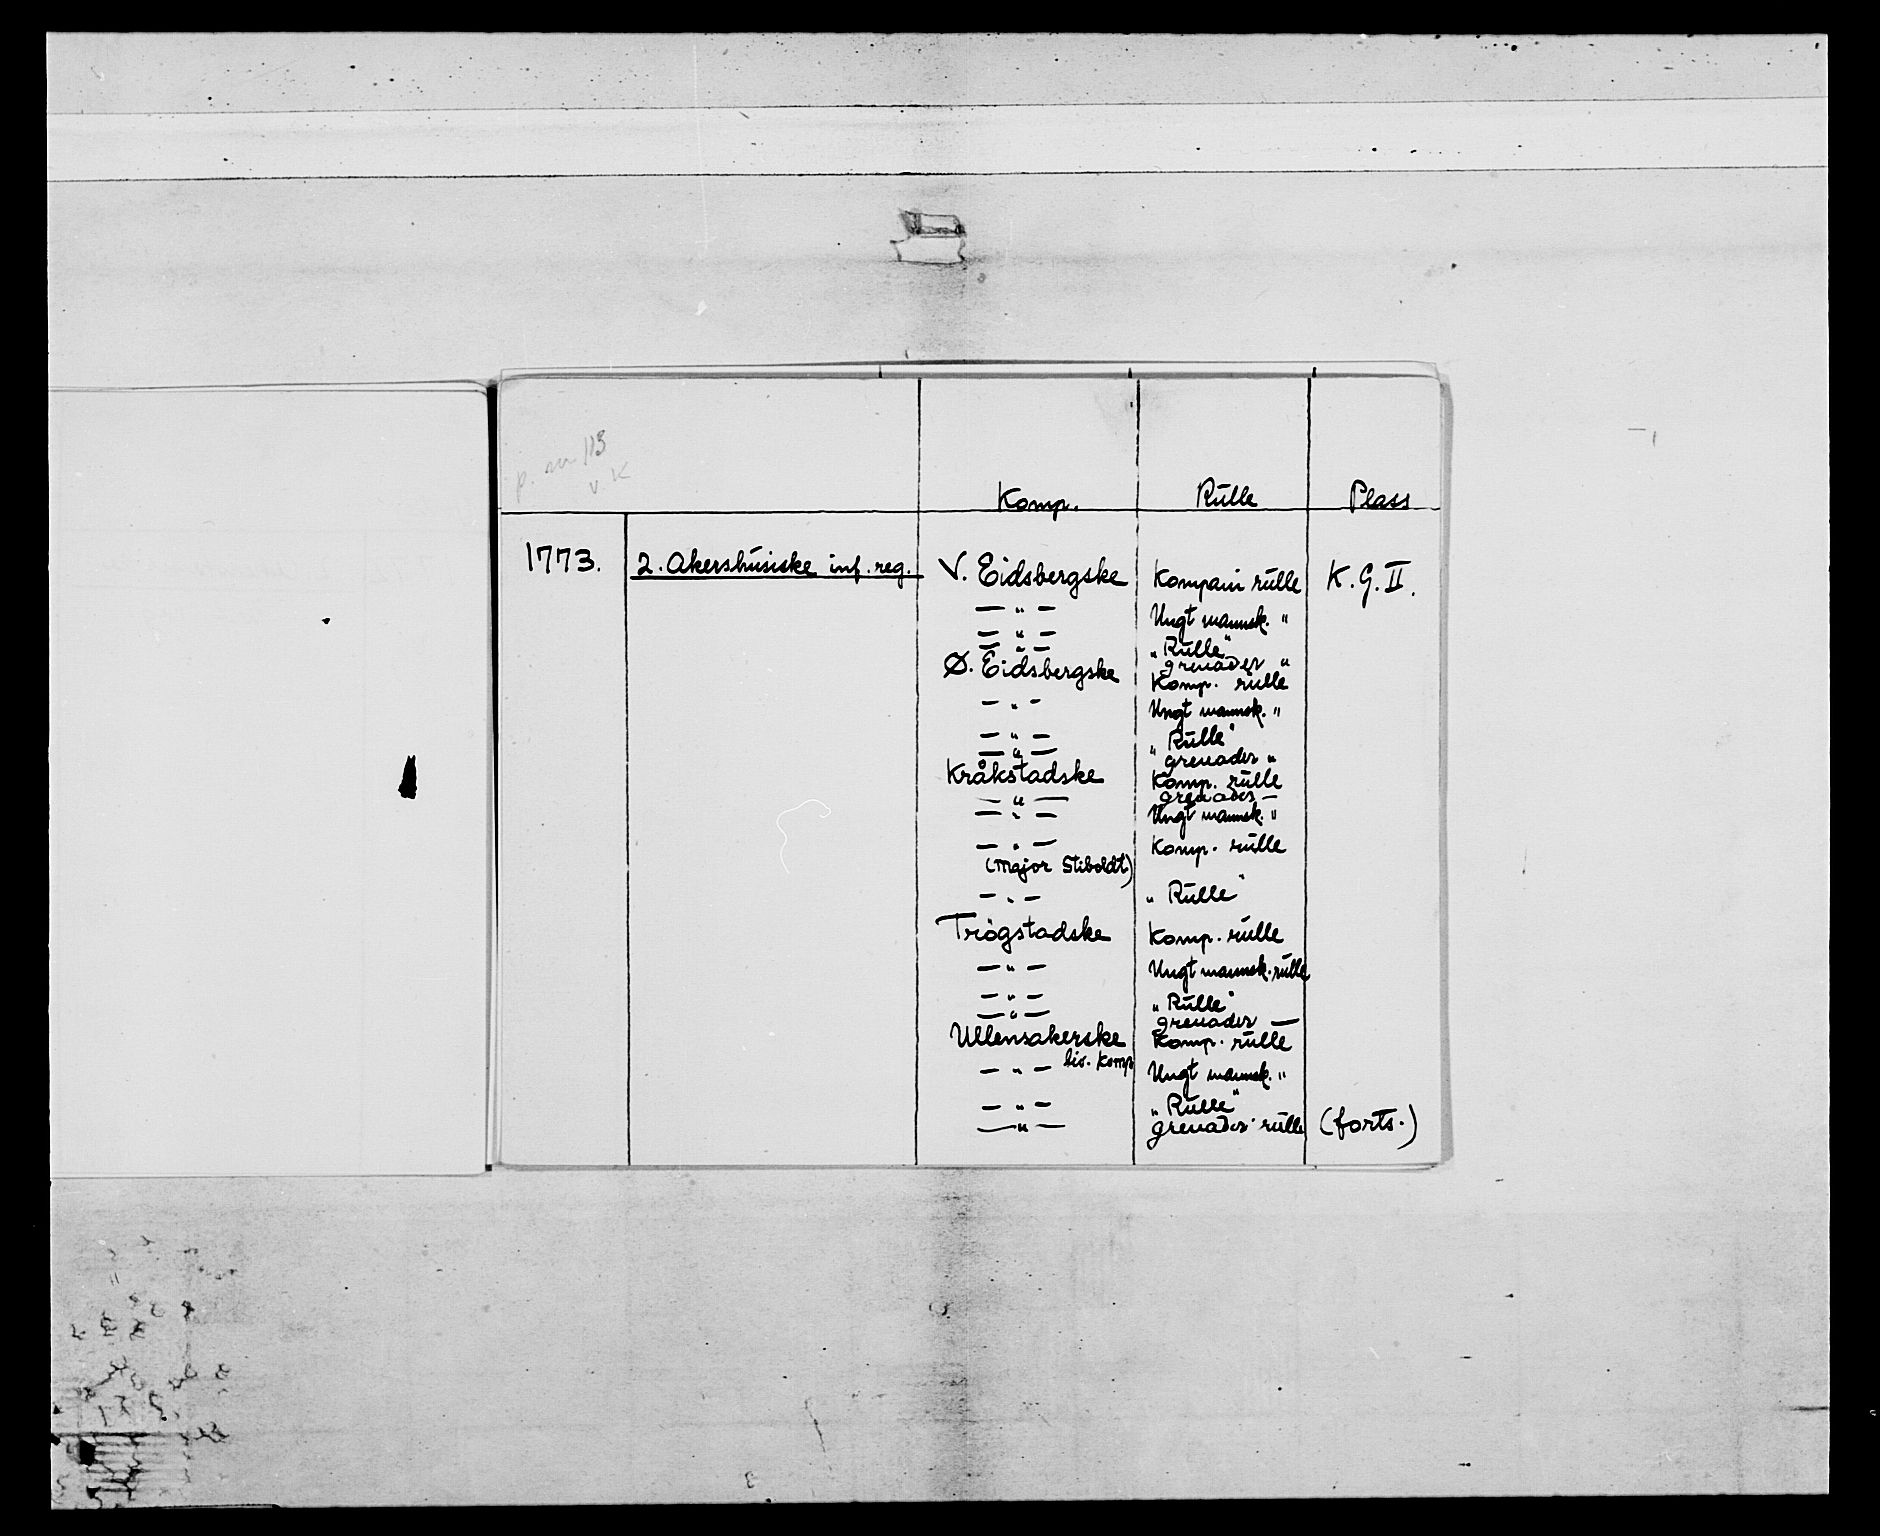 p. nr 113
v. K
Komp. Rulle Plass
1773. 2. Akershusiske inf. reg. V. Eidsbergske Kompani rulle K. G. II.
— " — Ungt mannsk. "
— " — "Rulle"
— " — grenader "
Ø. Eidsbergske Komp. rulle
— " — Ungt mannsk. "
— " — "Rulle"
— " — grenader "
Kråkstadske Komp. rulle
— " — grenader —
— " — Ungt mannsk. "
— " — Komp. rulle
(Major Stiboldt)
— " — "Rulle"
Trögstadske Komp. rulle
— " — Ungt mannsk. rulle
— " — "Rulle"
— " — grenader —
Ullensakerske Komp. rulle
liv. komp
— " — Ungt mannsk. "
— " — "Rulle"
— " — grenader rulle (forts.)